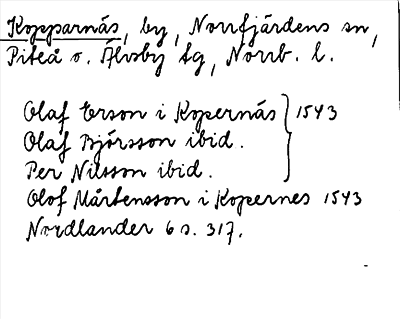 Kopparnäs, by, Norrfjärdens sn,
Piteå o. Älvsby tg, Norrb. l.
Olaf Erson i Kopernäs } 1543
Olaf Björsson ibid.
Per Nilsson ibid.
Olof Mårtensson i Kopernes 1543
Nordlander 6 s. 317.